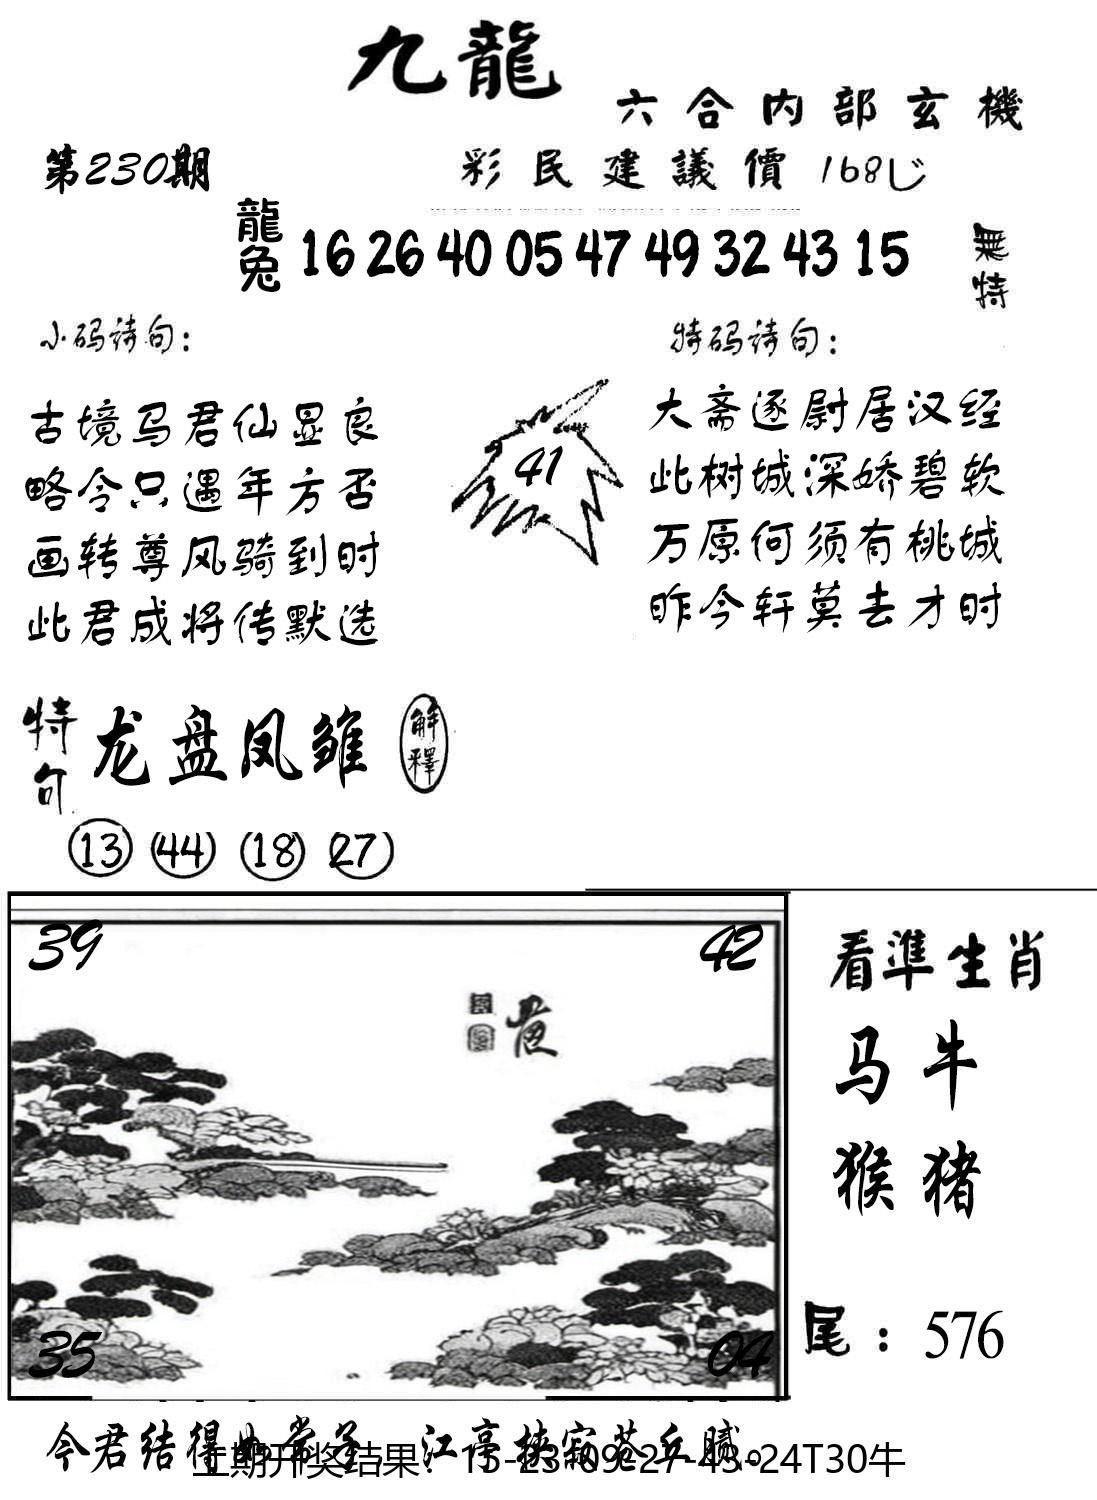 九龍
六合内部玄機
第230期
彩民建議價 168
龍兔 16 26 40 05 47 49 32 43 15
無特
小码诗句：
特码诗句：
古境马君仙显良
略今只遇年方否
画转尊风骑到时
此君成将传默选
41
大斋逐尉居汉经
此树城深娇碧软
万原何须有桃城
昨今轩莫去才时
特句 龙盘凤雏 解釋
13 44 18 27
39 42
35 04
看準生肖
马牛
猴猪
尾：576
今君结得 常 江亭 寂苍丘腻。
上期开奖结果：15-23-09-27-43-24T30牛